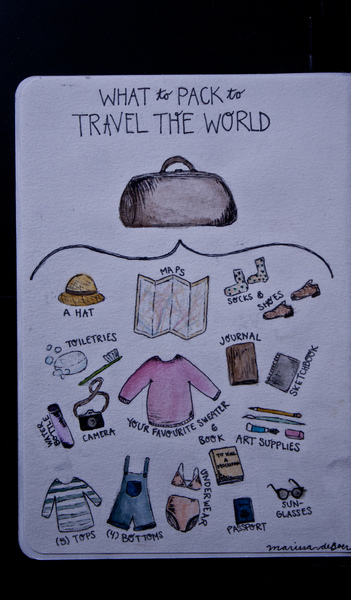 WHAT to PACK to
TRAVEL THE WORLD
MAPS
A HAT
SOCKS & SHOES
TOILETRIES
JOURNAL
SKETCHBOOK
WATER BOTTLE
CAMERA
YOUR FAVOURITE SWEATER
& BOOK
ART SUPPLIES
TO KILL A MOCKINGBIRD
UNDERWEAR
PASSPORT
SUN-
GLASSES
(5) TOPS
(4) BOTTOMS
marissa deBoer